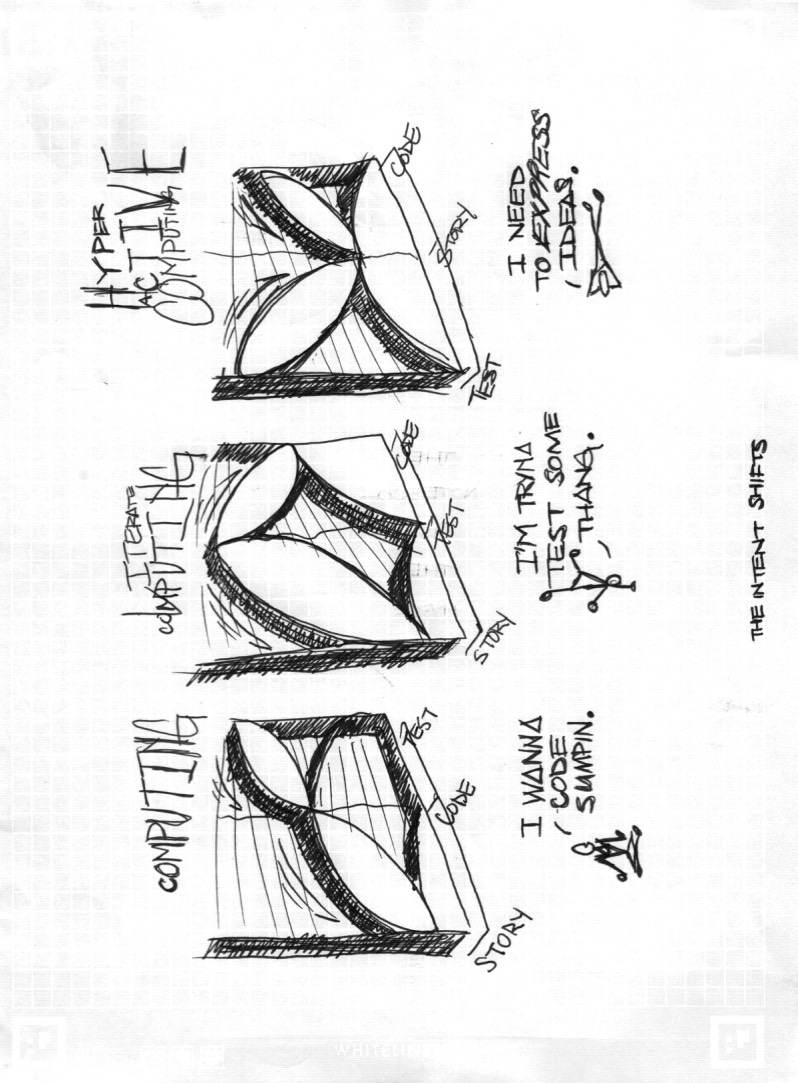 COMPUTING
STORY
CODE
TEST
I WANNA
CODE
SUMPIN.
ITERATE
COMPUTING
STORY
TEST
CODE
I'M TRYNA
TEST SOME
THANG.
HYPER
ACTIVE
COMPUTING
TEST
STORY
CODE
I NEED
TO EXPRESS
IDEAS.
THE INTENT SHIFTS